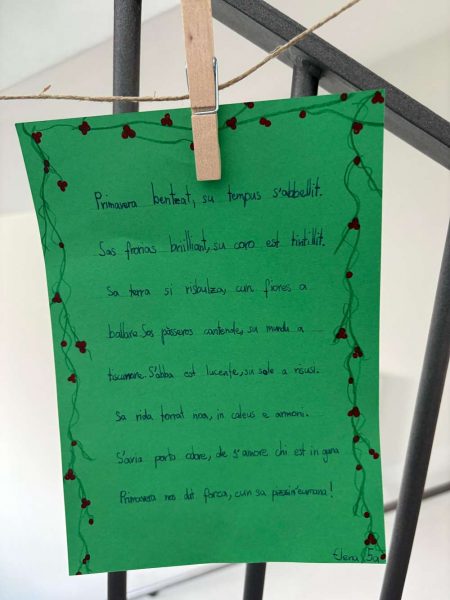 Primavera bentzat, su tempus s'abbellit.
Sas fronas brilliant, su coro est tintillit.
Sa terra si risbulza, cun fiores a
ballare. Sos pàsseros cantende, su mundu a
S'abba est lucente, su sole a
Sa rida torrat noa, in caleus e ammore.
S'aria porta odore, de s'amore chi est in
Primavera nos dat forza, cun sa
Elena 5a